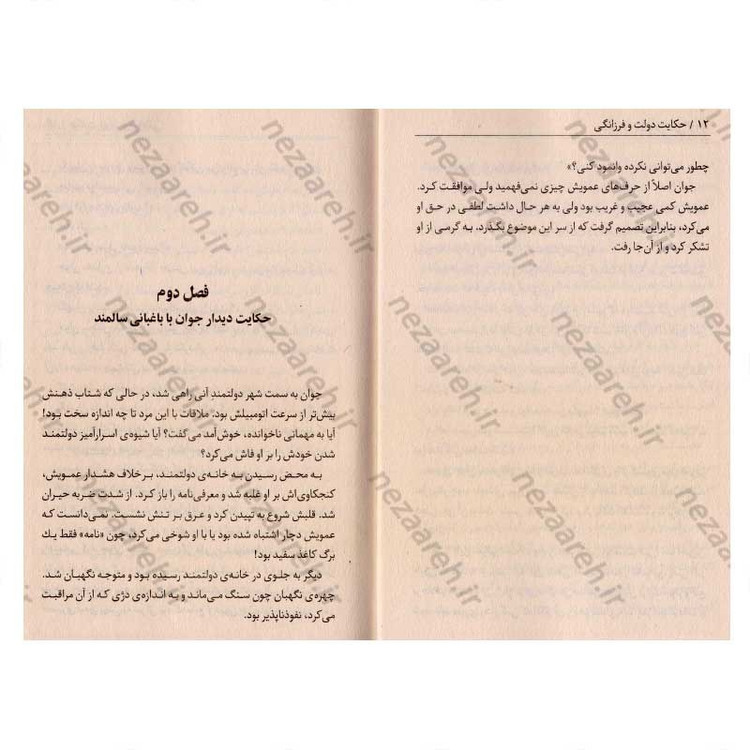 ۱۲ / حکایت دولت و فرزانگی
چطور می‌توانی نکرده وانمود کنی؟»
جوان اصلاً از حرف‌های عمویش چیزی نمی‌فهمید ولی موافقت کرد.
عمویش کمی عجیب و غریب بود ولی به هر حال داشت لطفی در حق او
می‌کرد، بنابراین تصمیم گرفت که از سر این موضوع بگذرد، به گرمی از او
تشکر کرد و از آن‌جا رفت.
فصل دوم
حکایت دیدار جوان با باغبانی سالمند
جوان به سمت شهر دولتمندِ آنی راهی شد، در حالی که شتاب ذهنش
بیش‌تر از سرعت اتومبیلش بود. ملاقات با این مرد تا چه اندازه سخت بود!
آیا به مهمانی ناخوانده، خوش‌آمد می‌گفت؟ آیا شیوه‌ی اسرارآمیز دولتمند
شدن خودش را بر او فاش می‌کرد؟
به محض رسیدن به خانه‌ی دولتمند، برخلاف هشدار عمویش،
کنجکاوی‌اش بر او غلبه شد و معرفی‌نامه را باز کرد. از شدت ضربه حیران
شد. قلبش شروع به تپیدن کرد و عرق بر تنش نشست. نمی‌دانست که
عمویش دچار اشتباه شده بود یا با او شوخی می‌کرد، چون «نامه» فقط یك
برگ کاغذ سفید بود!
دیگر به جلوی در خانه‌ی دولتمند رسیده بود و متوجه نگهبان شد.
چهره‌ی نگهبان چون سنگ می‌ماند و به اندازه‌ی دژی که از آن مراقبت
می‌کرد، نفوذناپذیر بود.
nezaareh.ir
nezaareh.ir
nezaareh.ir
nezaareh.ir
nezaareh.ir
nezaareh.ir
nezaareh.ir
nezaareh.ir
nezaareh.ir